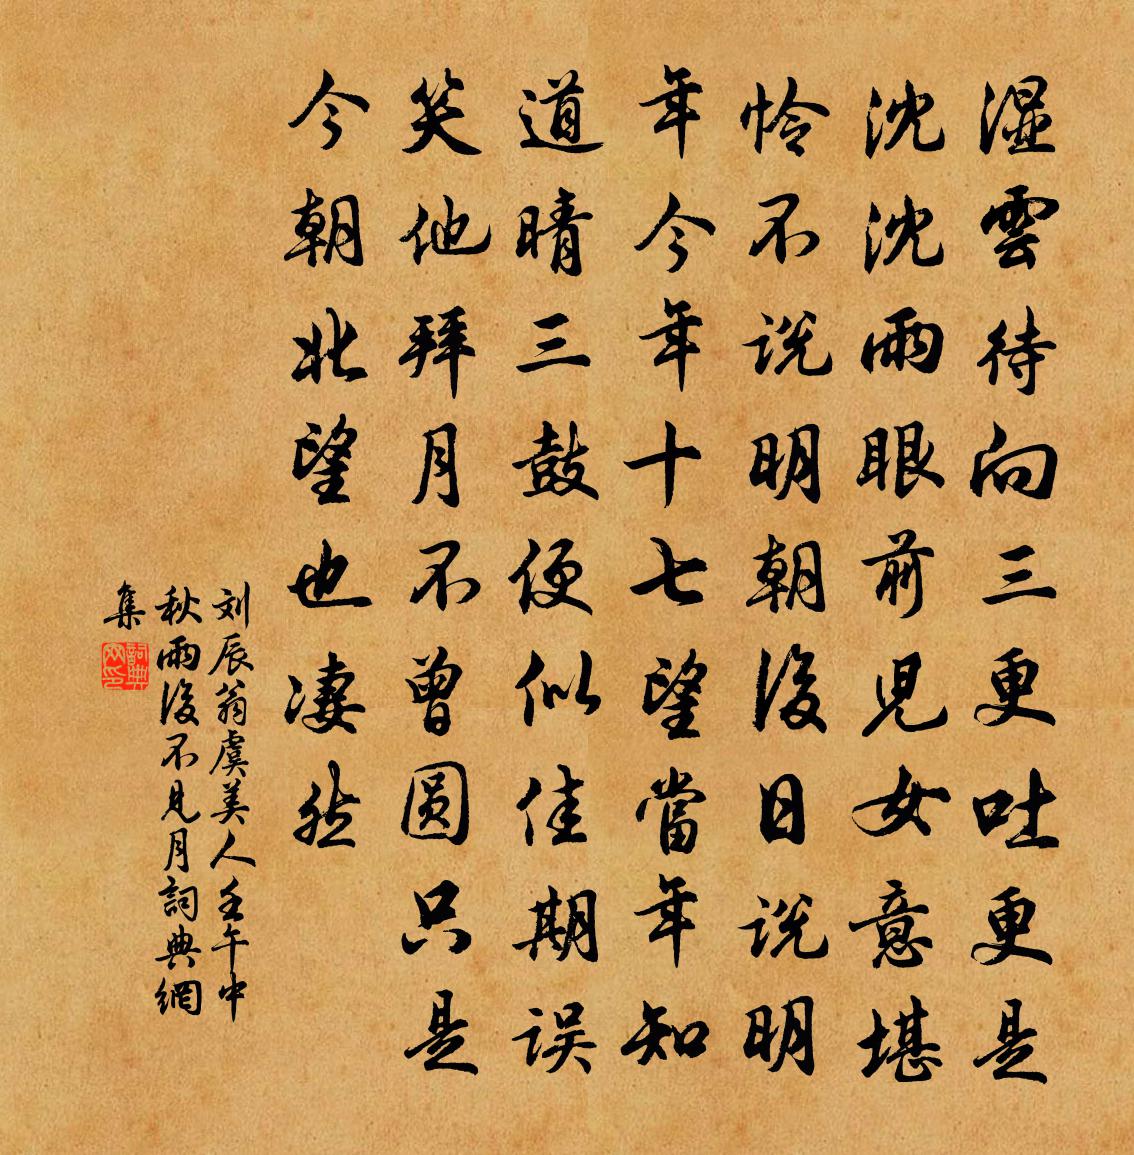 濕雲待向三更吐更是
沈沈雨眼前児女意堪
怜不説明朝後日説明
年今年十七望當年知
道晴三鼓便似佳期誤
笑他拜月不曾圆只是
今朝北望也凄然
刘辰翁虞美人壬午中
秋雨後不见月詞典網
集
詞典網印